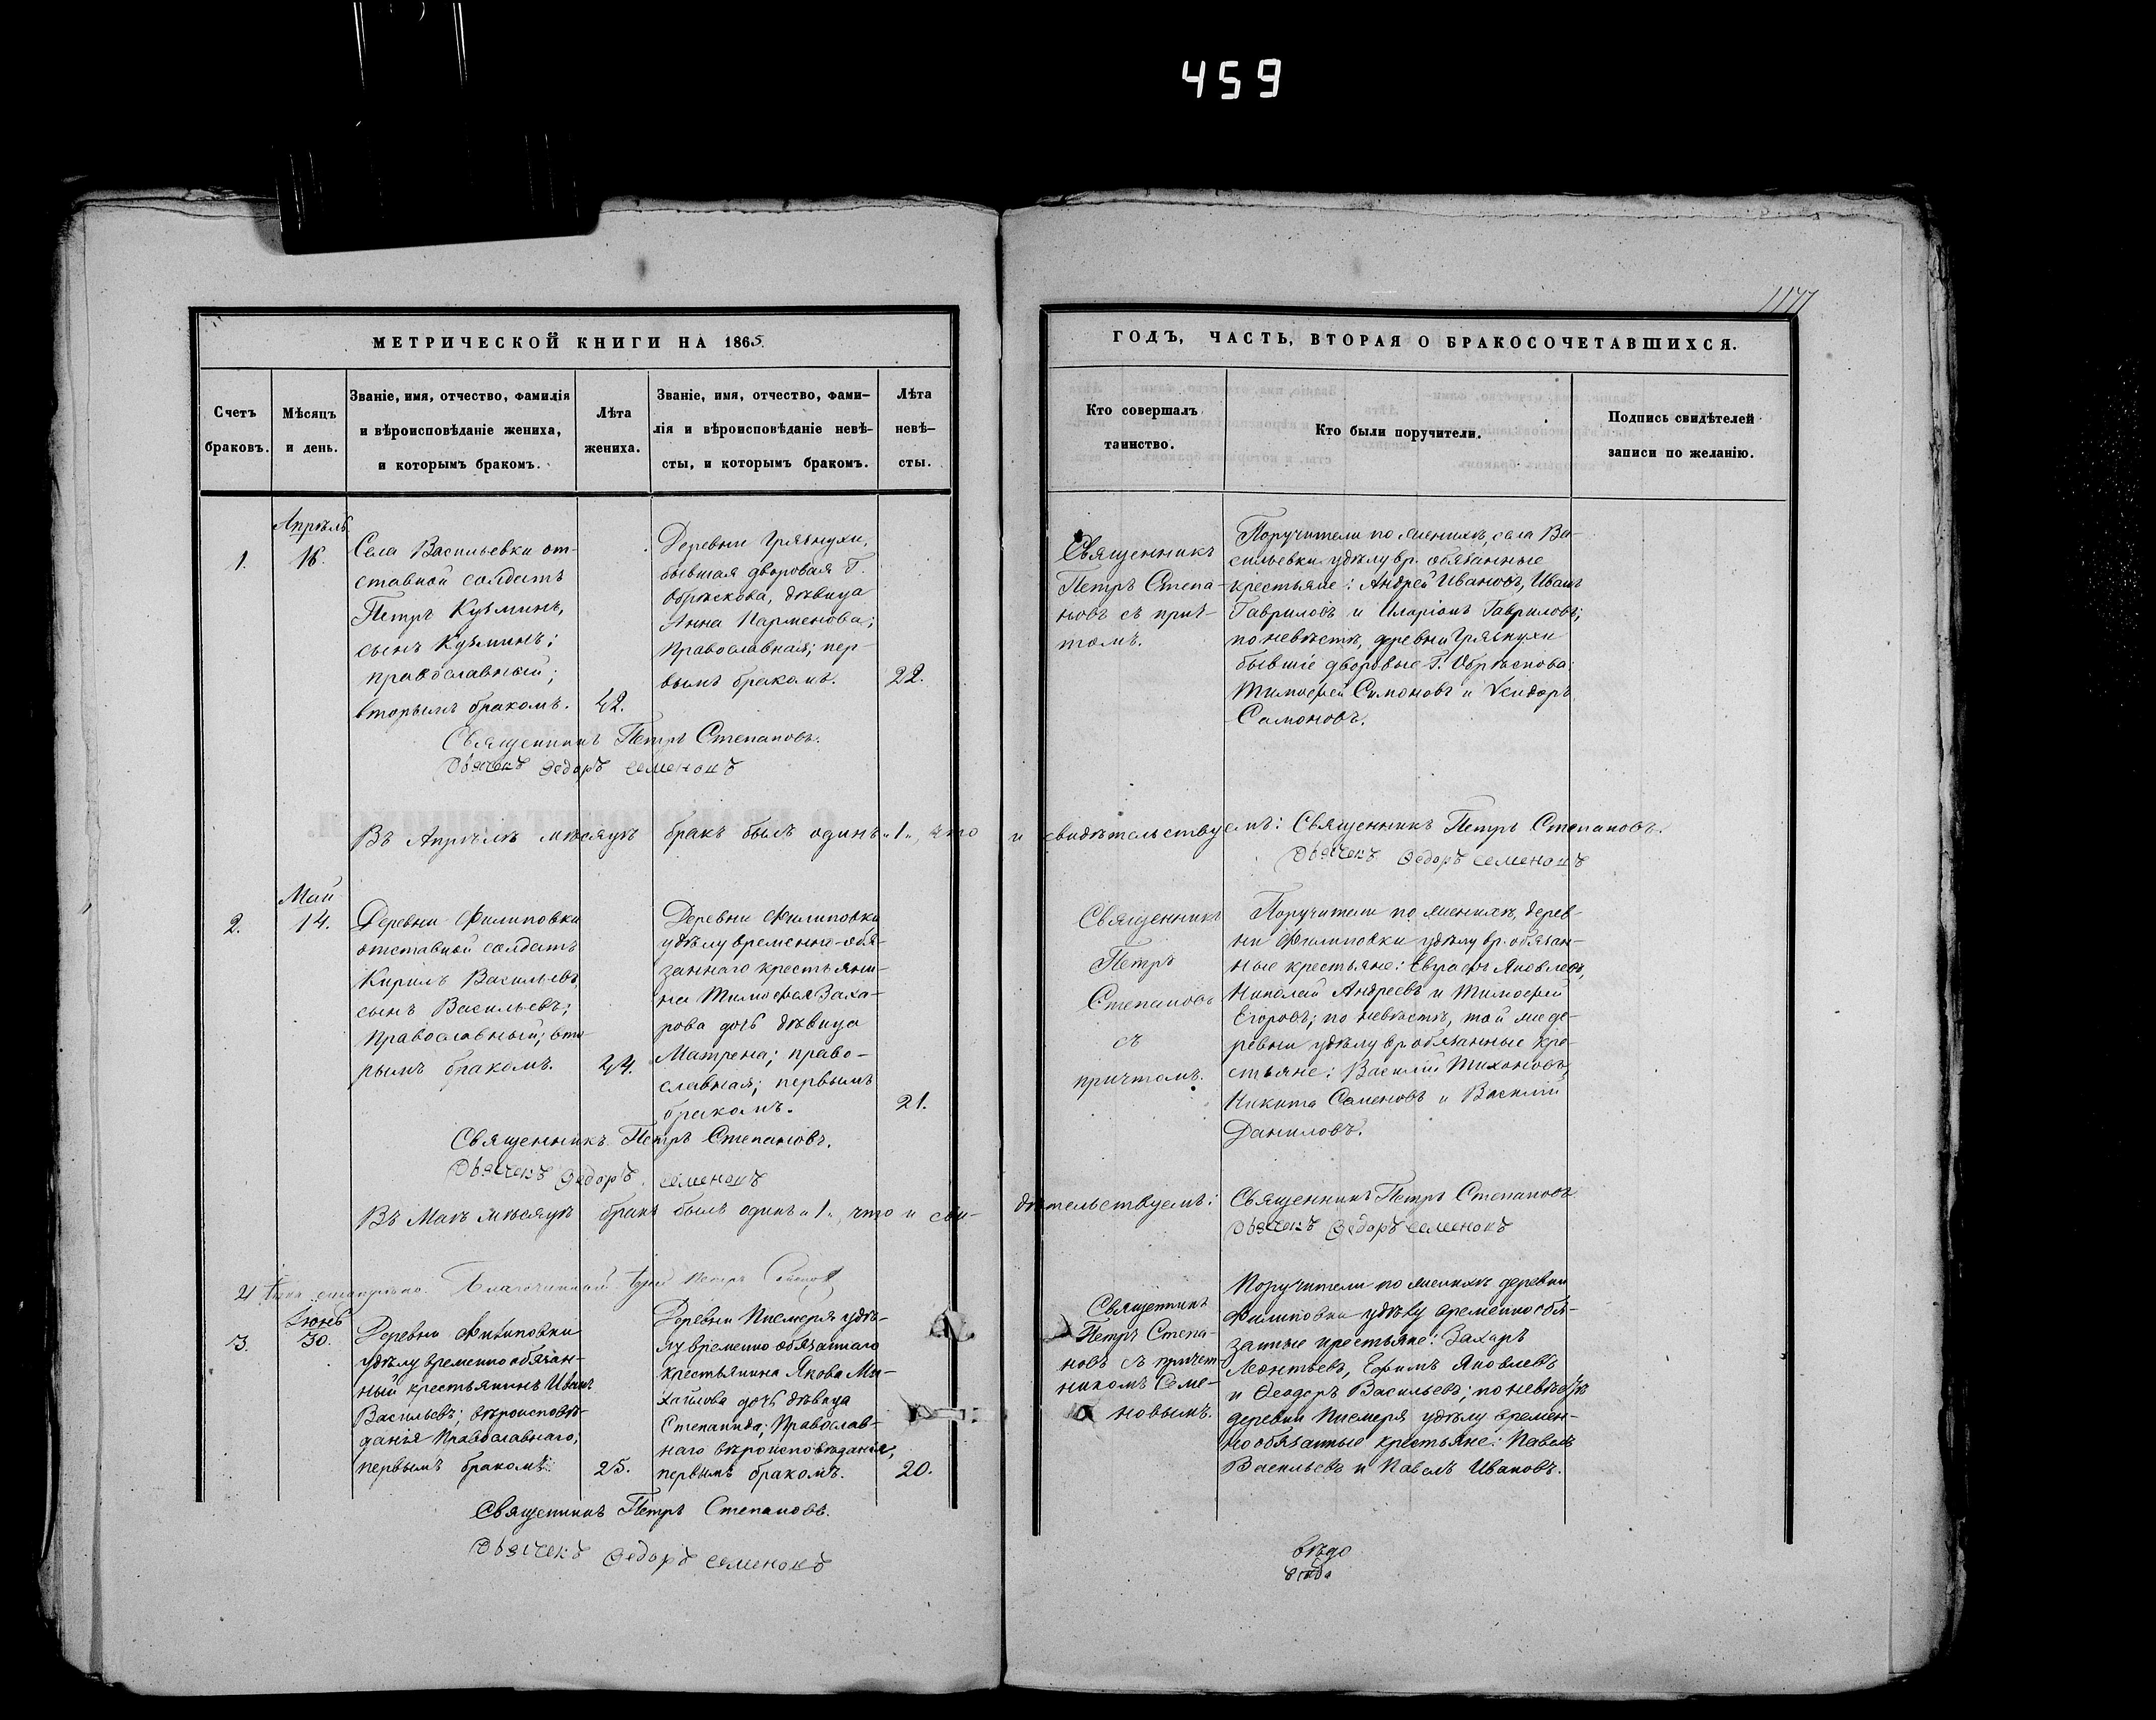 459
1177
МЕТРИЧЕСКОЙ КНИГИ НА 1865
Счетъ
браковъ.
Мѣсяцъ
и день.
Званіе, имя, отчество, фамилія
и вѣроисповѣданіе жениха,
и которымъ бракомъ.
Лѣта
жениха.
Званіе, имя, отчество, фами-
лія и вѣроисповѣданіе невѣ-
сты, и которымъ бракомъ.
Лѣта
невѣ-
сты.
ГОДЪ, ЧАСТЬ, ВТОРАЯ О БРАКОСОЧЕТАВШИХСЯ.
Кто совершалъ
таинство.
Кто были поручители.
Подпись свидѣтелей
записи по желанію.
1.
Апрѣль
18.
Села Васильевки от-
ставной солдатъ
Петръ Кузминъ,
сынъ Кузминъ;
православный;
вторымъ бракомъ.
42.
Деревни Грязнухи,
бывшая дворовая Г.
Обрѣскова, дѣвица
Анна Парменова;
православная; пер-
вымъ бракомъ.
22.
Священникъ
Петръ Степа-
новъ съ прич-
томъ.
Поручители по женихѣ, села Ва-
сильевки удѣлу вр. обязанные
крестьяне: Андрей Ивановъ, Иванъ
Гавриловъ и Иларіонъ Гавриловъ;
по невѣстѣ, деревни Грязнухи
бывшіе дворовые Г. Обрѣскова:
Тимофей Симоновъ и Исидоръ
Самоновъ.
Священникъ Петръ Степановъ.
Дьячекъ Федоръ Семеновъ
Въ Апрѣлѣ мѣсяцѣ бракъ былъ одинъ „1„, что и свидѣтельствуемъ: Священникъ Петръ Степановъ.
Дьячекъ Федоръ Семеновъ
2.
Май
14.
Деревни Филиповки
отставной солдатъ
Кирилъ Васильевъ,
сынъ Васильевъ;
православный; вто-
рымъ бракомъ.
44.
Деревни Филиповки
удѣлу временно-обя-
заннаго крестьяни-
на Тимофея Заха-
рова дочь дѣвица
Матрена; право-
славная; первымъ
бракомъ.
21.
Священникъ
Петръ
Степановъ
съ
причтомъ.
Поручители по женихѣ, дерев-
ни Филиповки удѣлу вр. обязан-
ные крестьяне: Яковлевъ,
Николай Андреевъ и Тимофей
Егоровъ; по невѣстѣ, той же де-
ревни удѣлу вр обязанные кре-
стьяне: Василій Тихоновъ,
Никита Семеновъ и Василій
Даниловъ.
Священникъ Петръ Степановъ.
Дьячекъ Федоръ Семеновъ
Въ Маѣ мѣсяцѣ бракъ былъ одинъ „1„, что и сви-дѣтельствуемъ: Священникъ Петръ Степановъ
Дьячекъ Федоръ Семеновъ
Благочинный Петръ
3.
Іюнь
30.
Деревни Филиповки
удѣлу временно обязан-
ный крестьянинъ Иванъ
Васильевъ; вѣроисповѣ-
данія Православнаго,
первымъ бракомъ.
25.
Деревни Писмеря удѣ-
лу временно обязаннаго
крестьянина Якова Ми-
хайлова дочь дѣвица
Степанида; Православ-
наго вѣроисповѣданія,
первымъ бракомъ.
20.
Священникъ
Петръ Степа-
новъ съ причет-
никомъ Семе-
новымъ.
Поручители по женихѣ деревни
Филиповки удѣлу временно обя-
занные крестьяне: Захаръ
Леонтьевъ, Ефимъ Яковлевъ
и Ѳеодоръ Васильевъ; по невѣстѣ
деревни Писмеря удѣлу времен-
но обязанные крестьяне: Павелъ
Васильевъ и Павелъ Ивановъ.
Священникъ Петръ Степановъ.
Дьячекъ Федоръ Семеновъ